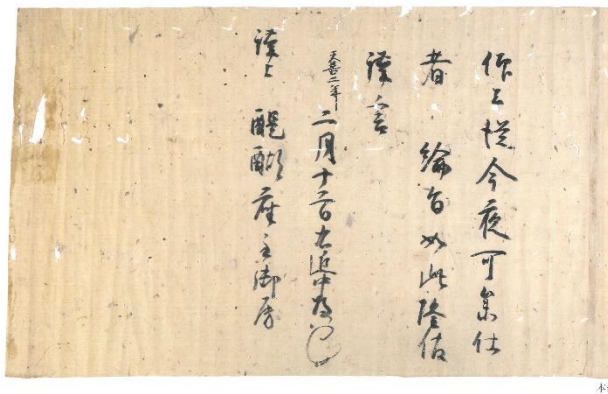 仰云従今夜可参仕
者 綸旨如此隆俊
謹言
天喜二年 二月十二日 近中将
謹上 醍醐座主御房